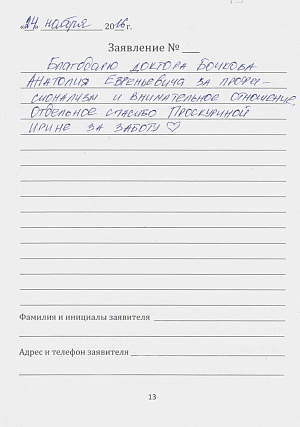 «14» ноября 2016 г.
Заявление № ___
Благодарю доктора Бочкова
Анатолия Евгеньевича за профес-
сионализм и внимательное отношение,
Отдельное спасибо Проскуриной
Ирине за заботу ♡
Фамилия и инициалы заявителя
Адрес и телефон заявителя
13